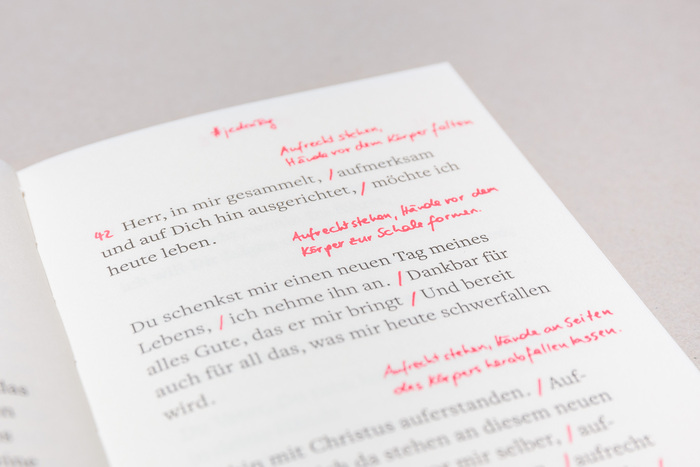 #jedenTag
Aufrecht stehen,
Hände vor dem Körper falten
42 Herr, in mir gesammelt, / aufmerksam
und auf Dich hin ausgerichtet, / möchte ich
heute leben.
Aufrecht stehen, Hände vor den
Körper zur Schale formen.
Du schenkst mir einen neuen Tag meines
Lebens, / ich nehme ihn an. / Dankbar für
alles Gute, das er mir bringt / Und bereit
auch für all das, was mir heute schwerfallen
wird.
Aufrecht stehen, Hände an Seiten
des Körpers herabfallen lassen.
mit Christus auferstanden. / Auf-
da stehen an diesem neuen
mir selber, / auf-
/ aufrecht